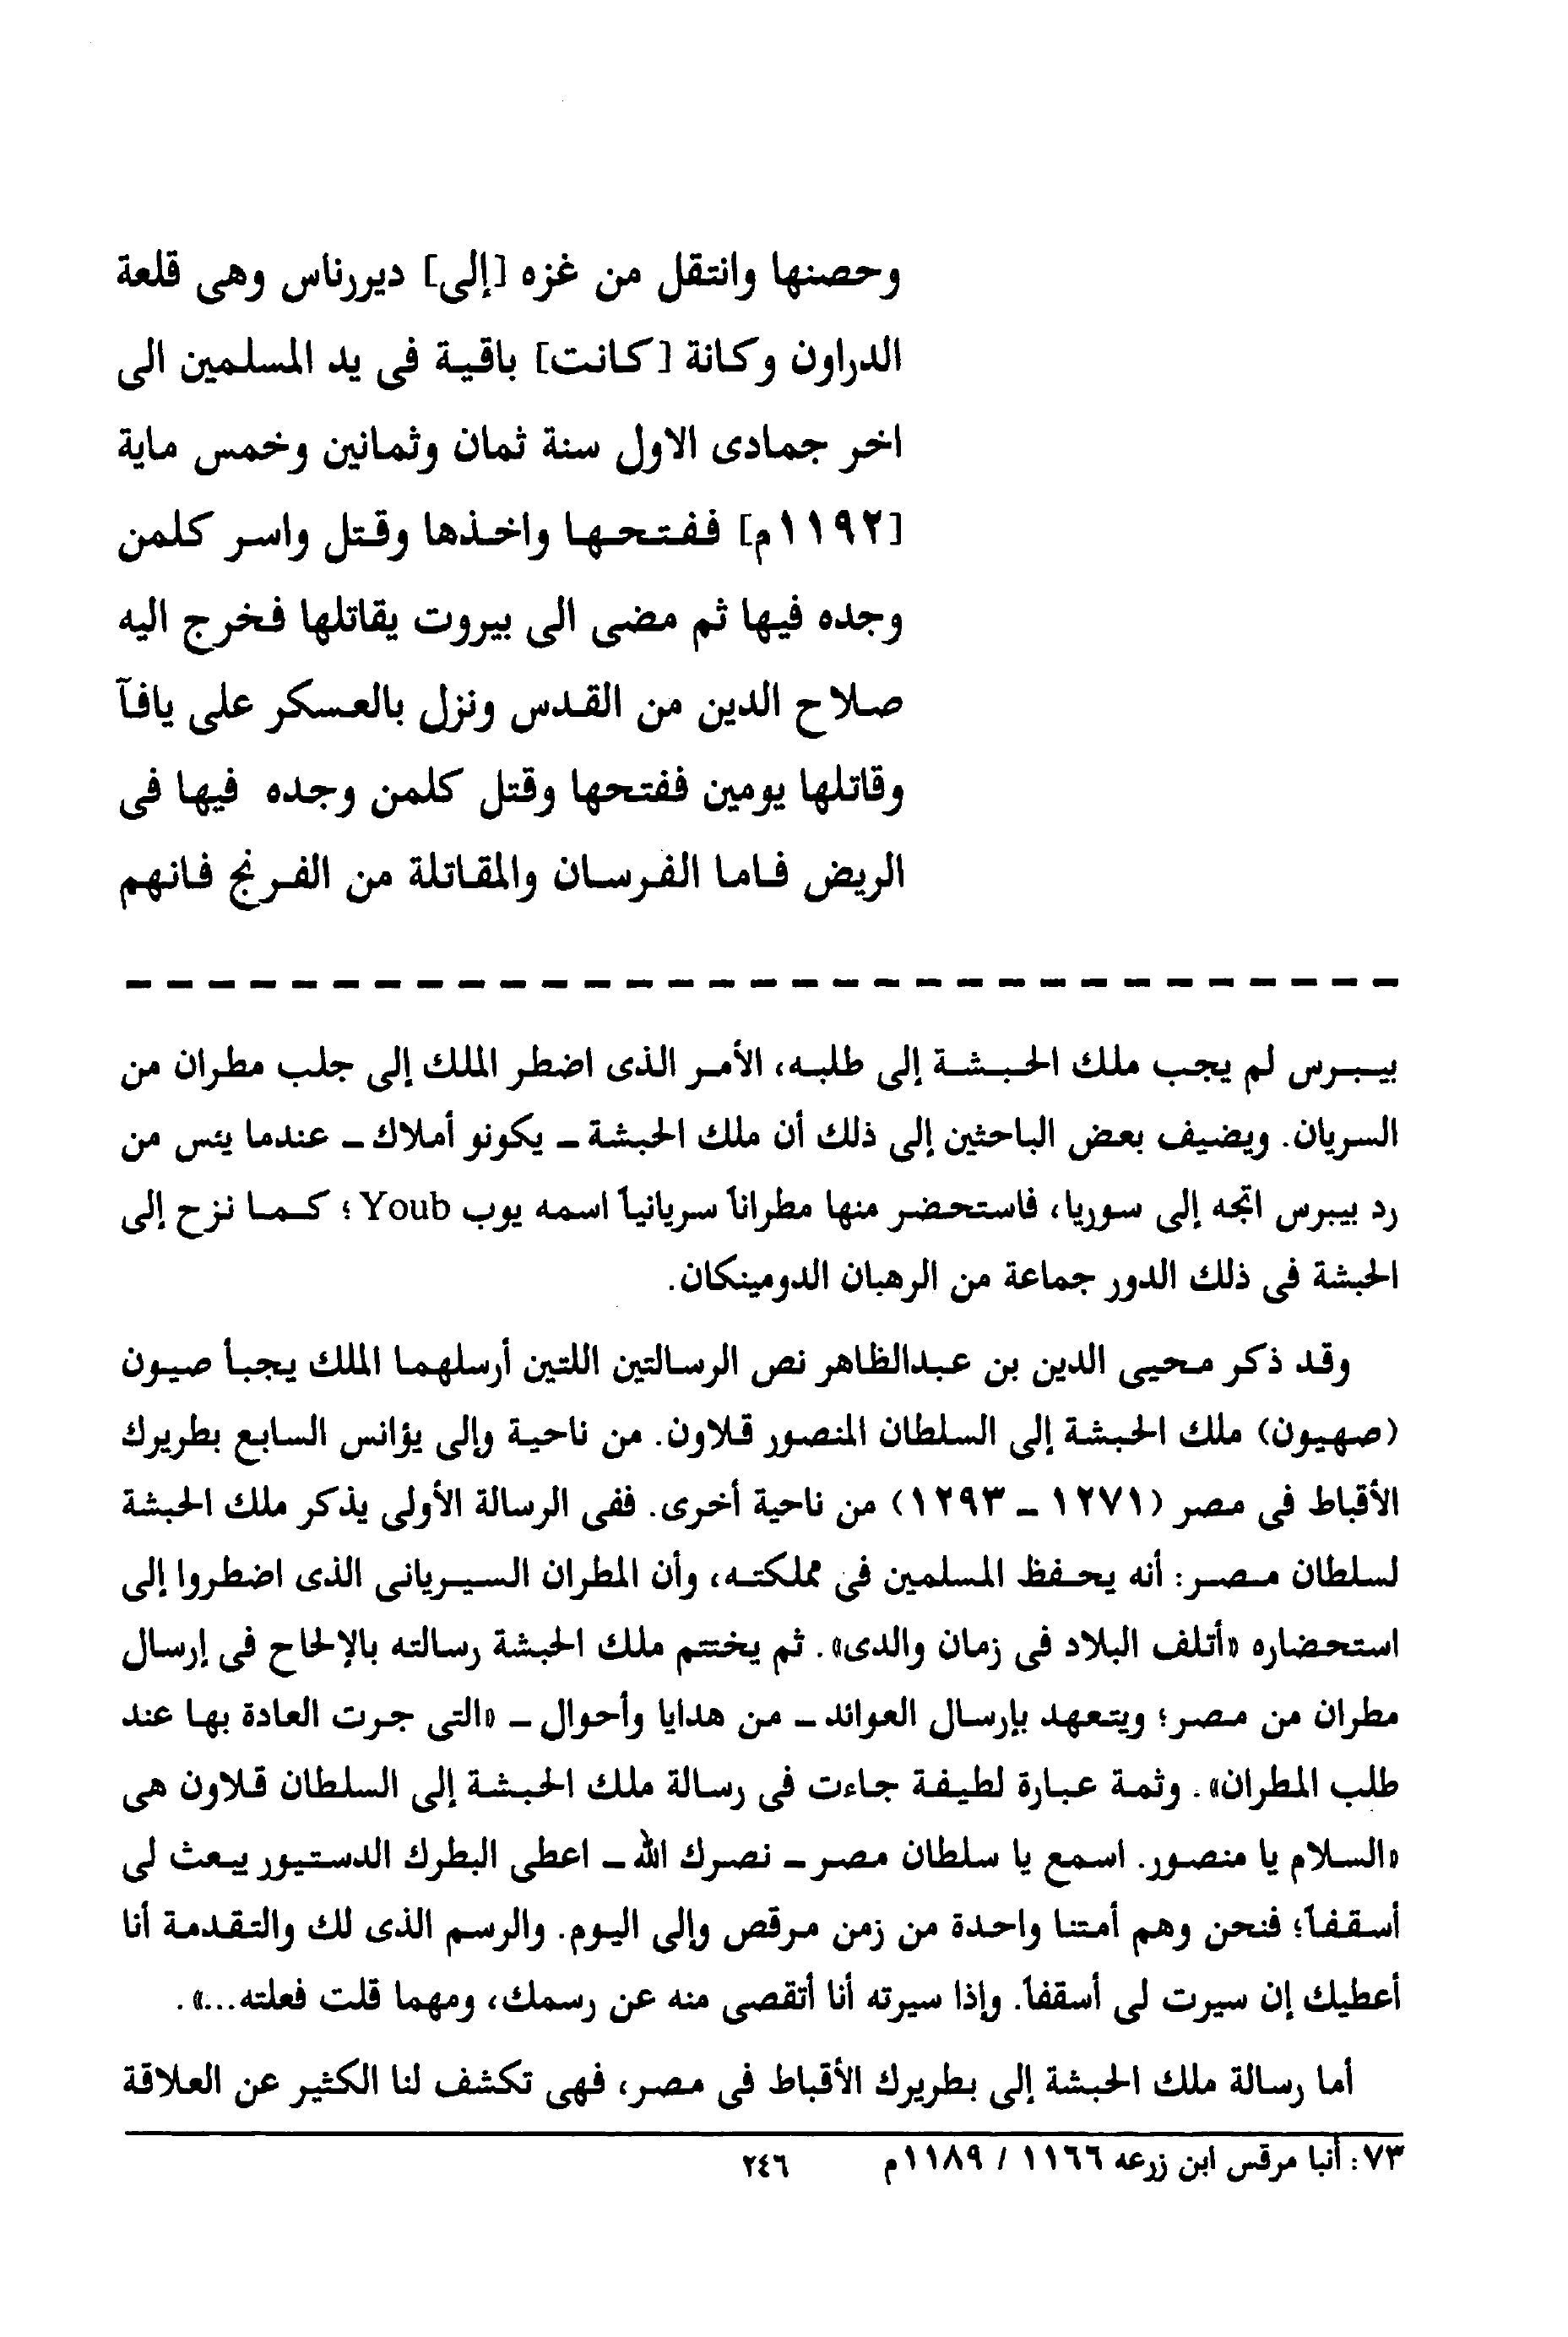 وحصنها وانتقل من غزه [إلى] ديررناس وهى قلعة
الدراون وكانة [كانت] باقية فى يد المسلمين الى
اخر جمادى الاول سنة ثمان وثمانين وخمس ماية
[١١٩٢م] ففتحها واخذها وقتل واسر كلمن
وجده فيها ثم مضى الى بيروت يقاتلها فخرج اليه
صلاح الدين من القدس ونزل بالعسكر على يافآ
وقاتلها يومين ففتحها وقتل كلمن وجده فيها فى
الربض فاما الفرسان والمقاتلة من الفرنج فانهم
بيبرس لم يجب ملك الحبشة إلى طلبه، الأمر الذى اضطر الملك إلى جلب مطران من
السريان. ويضيف بعض الباحثين إلى ذلك أن ملك الحبشة ـ يكونو أملاك ـ عندما يئس من
رد بيبرس اتجه إلى سوريا، فاستحضر منها مطراناً سريانياً اسمه يوب Youb ؛ كما نزح إلى
الحبشة فى ذلك الدور جماعة من الرهبان الدومينكان.
وقد ذكر محيى الدين بن عبدالظاهر نص الرسالتين اللتين أرسلهما الملك يجبأ صيون
(صهيون) ملك الحبشة إلى السلطان المنصور قلاون. من ناحية وإلى يؤانس السابع بطريرك
الأقباط فى مصر (١٢٧١ ـ ١٢٩٣) من ناحية أخرى. ففى الرسالة الأولى يذكر ملك الحبشة
لسلطان مصر: أنه يحفظ المسلمين فى مملكته، وأن المطران السيريانى الذى اضطروا إلى
استحضاره «أتلف البلاد فى زمان والدى». ثم يختتم ملك الحبشة رسالته بالإلحاح فى إرسال
مطران من مصر؛ ويتعهد بإرسال العوائد ـ من هدايا وأحوال ـ «التى جرت العادة بها عند
طلب المطران». وثمة عبارة لطيفة جاءت فى رسالة ملك الحبشة إلى السلطان قلاون هى
«السلام يا منصور. اسمع يا سلطان مصر ـ نصرك الله ـ اعطى البطرك الدستيور يبعث لى
أسقفاً؛ فنحن وهم أمتنا واحدة من زمن مرقص وإلى اليوم. والرسم الذى لك والتقدمة أنا
أعطيك إن سيرت لى أسقفاً. وإذا سيرته أنا أتقصى منه عن رسمك، ومهما قلت فعلته...».
أما رسالة ملك الحبشة إلى بطريرك الأقباط فى مصر، فهى تكشف لنا الكثير عن العلاقة
٧٣: أنبا مرقس ابن زرعه ١١٦٦ / ١١٨٩م ٢٤٦